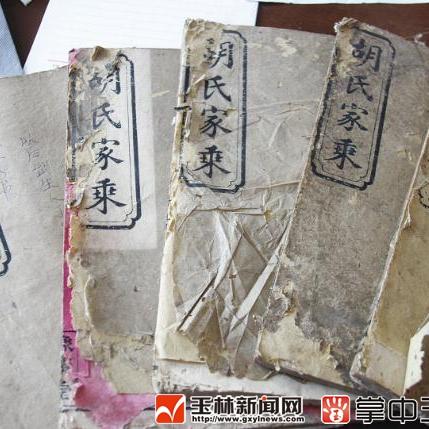 胡氏家乘
胡氏家乘
胡氏家乘
玉林新闻网
www.gxylnews.com
掌中玉